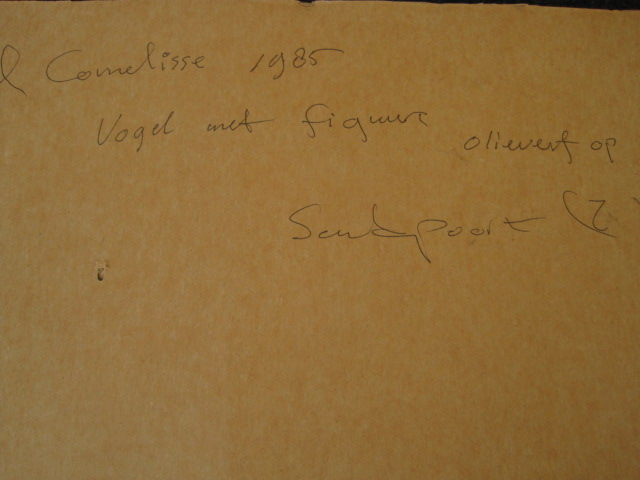 l Cornelisse 1985
Vogel met figuur
olieverf op
Santpoort (Z